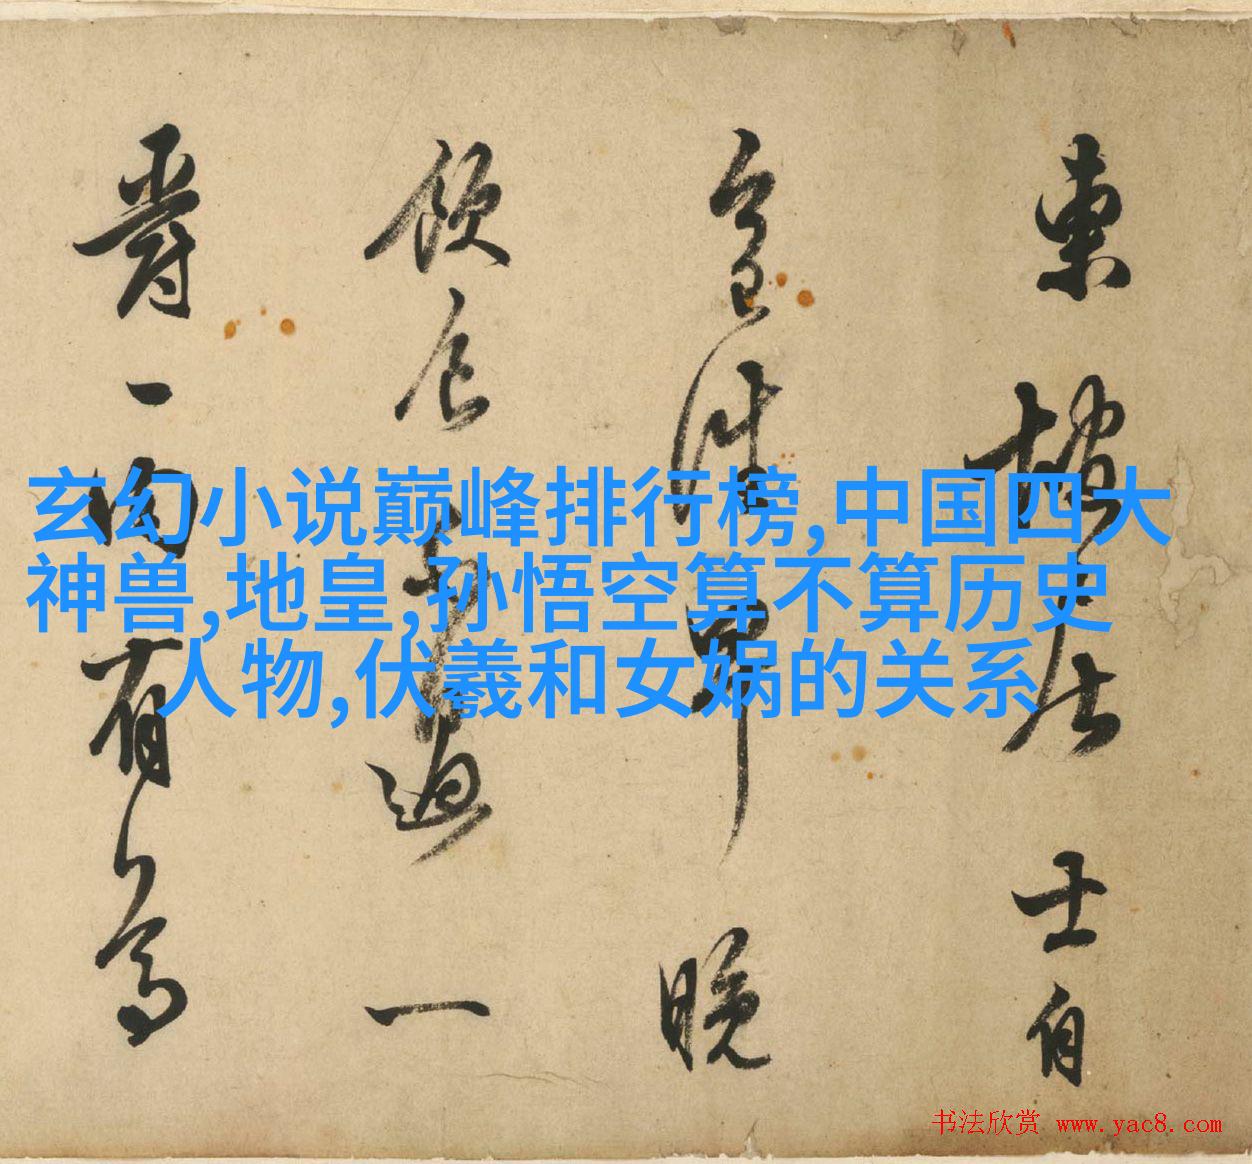 玄幻小说巅峰排行榜,中国四大
神兽,地皇,孙悟空算不算历史
人物,伏羲和女娲的关系
東坡居士自
今日往早晚
飲食不過一
爵一肉有
书法欣赏 www.yac8.com